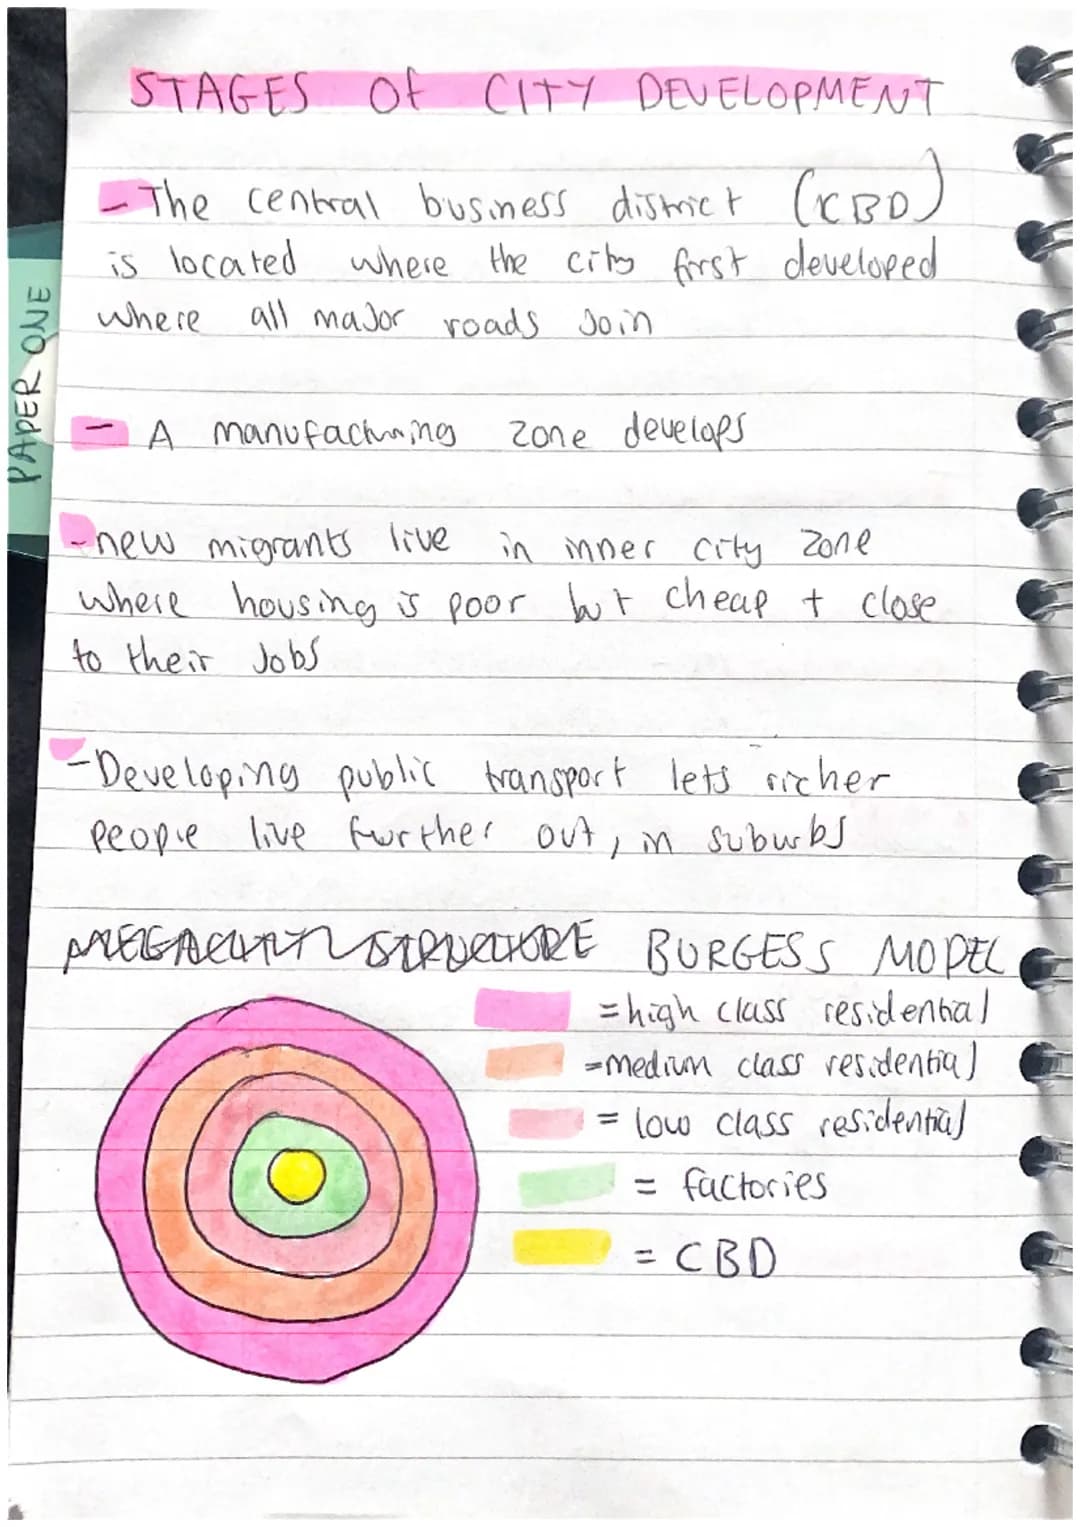 STAGES Of CITY DEVELOPMENT
- The central business district (CBD)
is located where the city first developed
where all major roads join
- A manufacturing zone develops
- new migrants live in inner city zone
where housing is poor but cheap + close
to their jobs
- Developing public transport lets richer
people live further out, in suburbs
MEGACITY STRUCTURE BURGESS MODEL
= high class residential
= medium class residential
= low class residential
= factories
= CBD
PAPER ONE